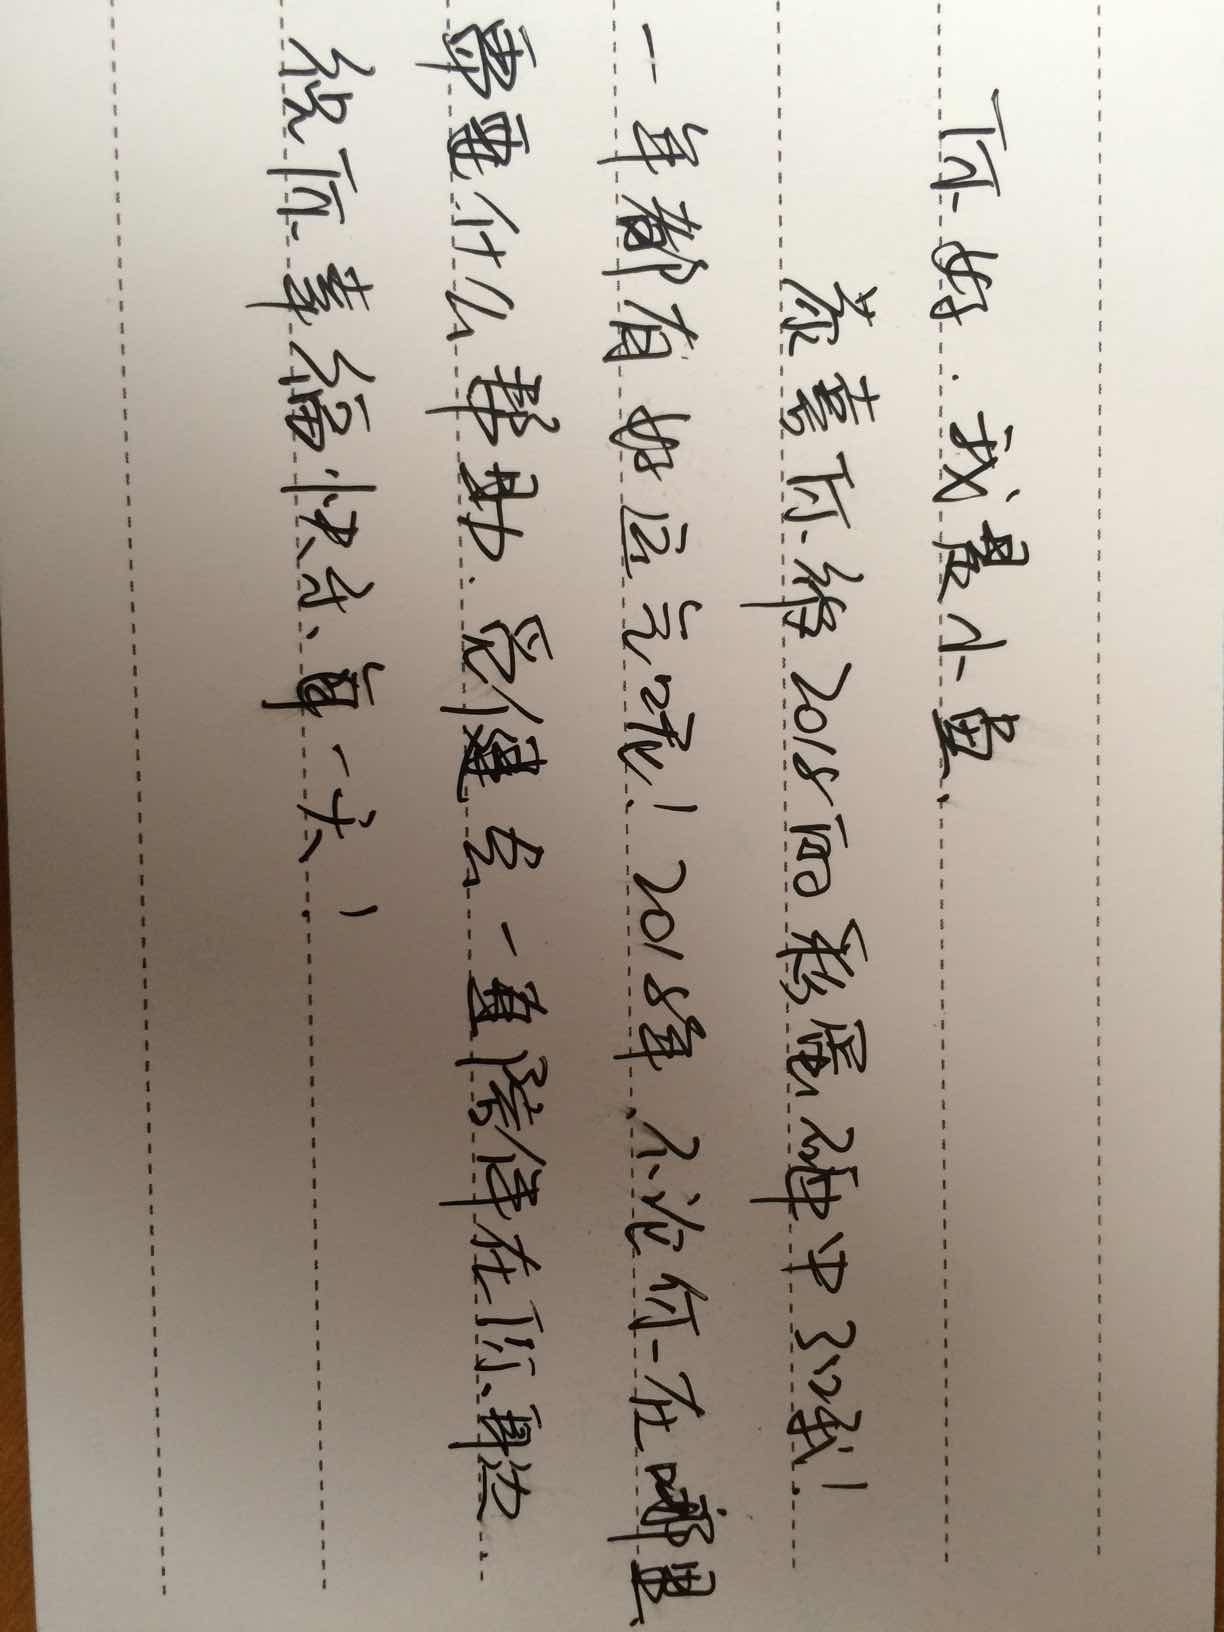 你好.我是小惠.
恭喜你将2018的彩蛋砸中了我!
一年都有好运气呢!2018年.不论你在哪里
需要什么帮助、爱健云一直陪伴在你身边.
祝你幸福快乐每一天!